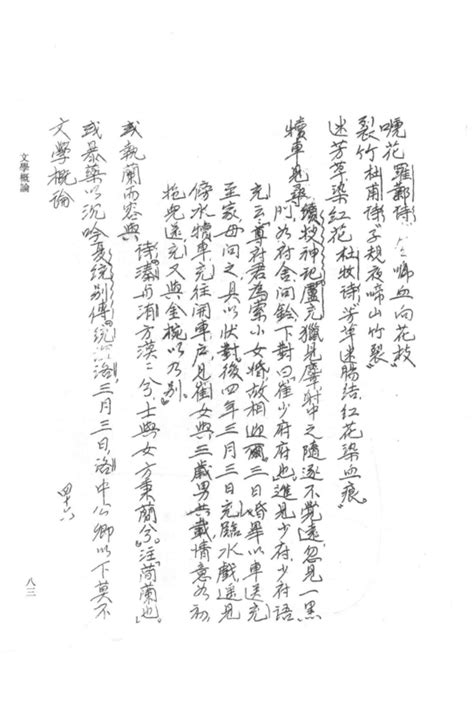 嘵花　雍鄱詩　啼血向花枝
裂竹　杜甫詩子規夜啼山竹裂
迷芳草染紅花　杜牧詩芳草迷腸結紅花染血痕
犢車
續搜神記盧充獵見麞射中之隨逐不覺遠忽見一黑
門如府舍問鈴下對曰崔少府府也進見少府少府語
充云尊府君為索小女婚故相迎三日婚畢以車送充
至家母問之具以狀對後四年三月三日充臨水戲遥見
傍水犢車充往開車戶見崔女與三歲男共載情意如初
抱兒還充又與金椀以乃別
或執蘭而容與
詩溱與洧方渙二兮士與女方秉蕳兮注蕳蘭也
或暴藥以沉吟夏統別傳統 洛三月三日洛中公卿以下莫不
文學概論
四十六
文學概論
八三